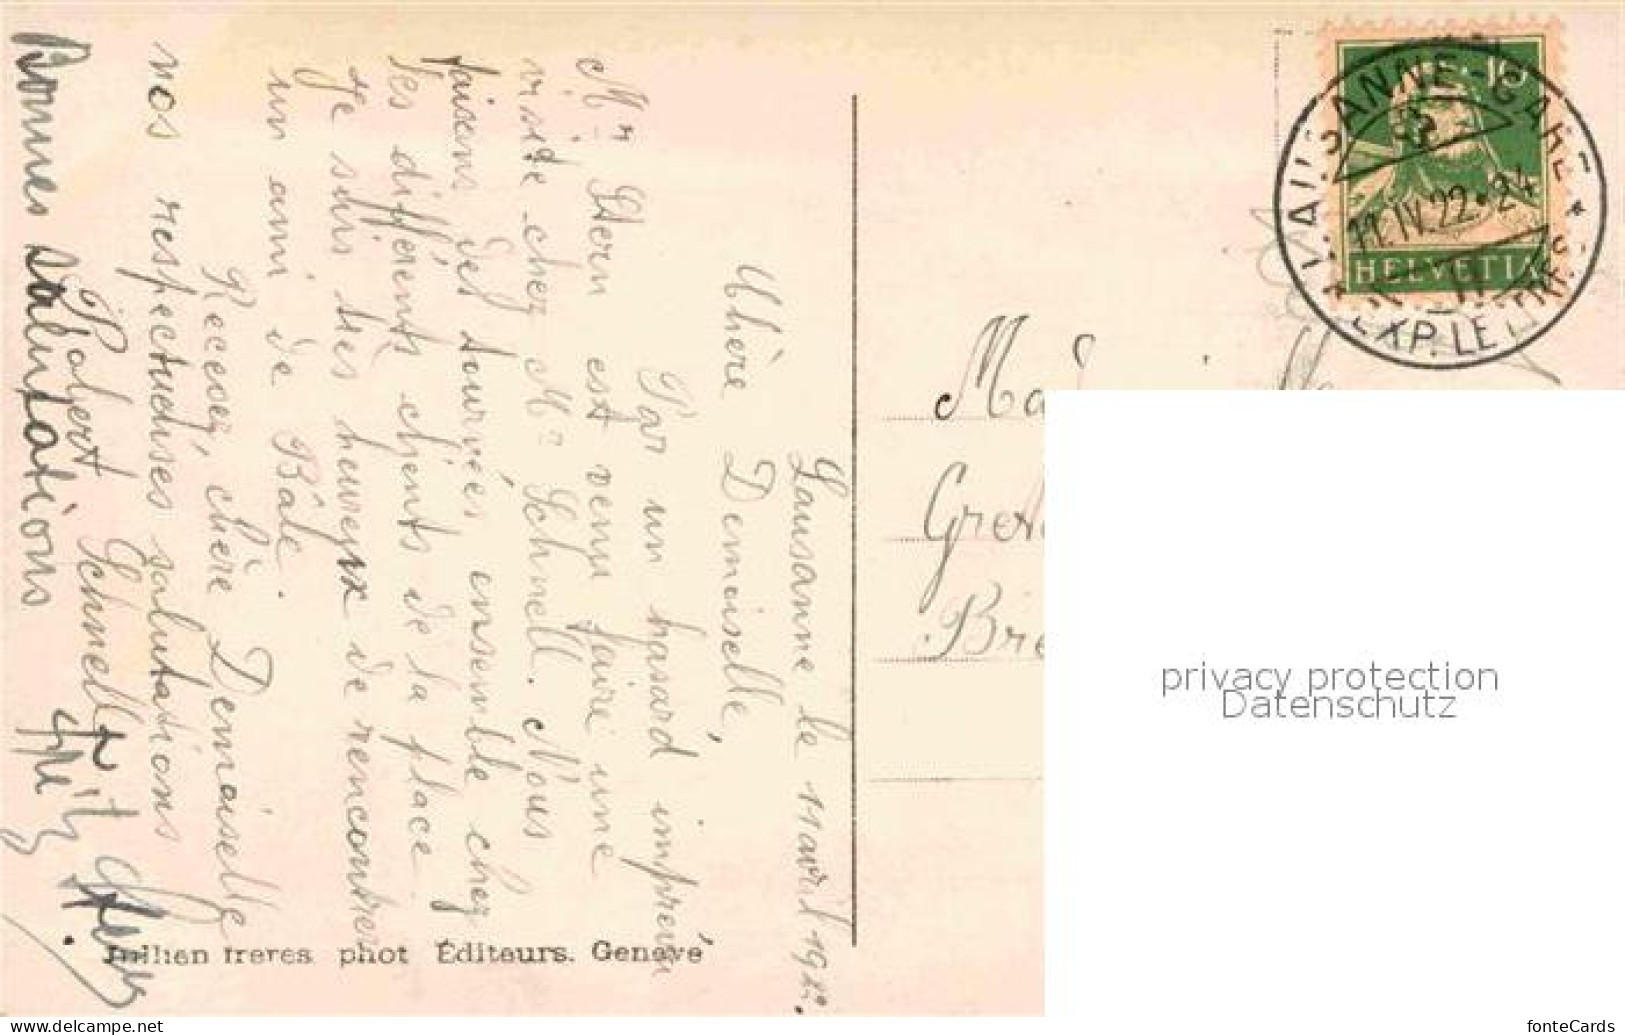 Lausanne le 11 avril 1922.
Chère Demoiselle,
Par un hasard imprévu
Mr Stern est venu faire une
visite chez Mr Schnell. Nous
faisons des tournées ensemble chez
les différents clients de la place.
Je suis très heureux de rencontrer
un ami de Bâle.
Recevez, chère Demoiselle
nos respectueuses salutations
Robert Schnell
Bonnes salutations
Jullien freres phot Éditeurs. Genève
LAUSANNE-GARE
11.IV.22•24
EXP. LETTRES
10
HELVETIA
privacy protection
Datenschutz
fonteCards